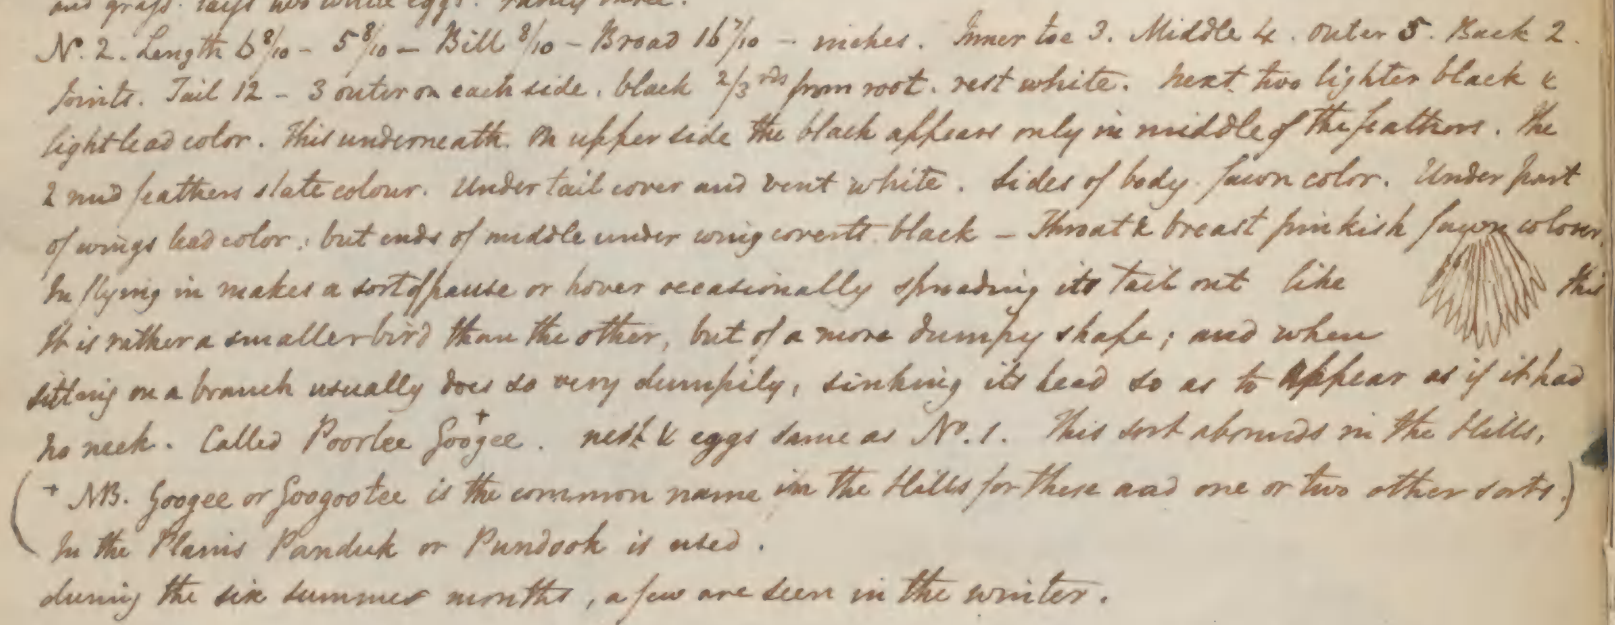 and grass. lays two white eggs. rarely three.
No. 2. Length 6 8/10 - 5 8/10 - Bill 8/10 - Broad 16 7/10 - inches. Inner toe 3. Middle 4. Outer 5. Back 2.
Joints. Tail 12 - 3 outer on each side, black 2/3rds from root. rest white. next two lighter black &
light lead color. This underneath. On upper side the black appears only in middle of the feathers. The
2 mid feathers slate colour. Under tail cover and vent white. Sides of body fawn color. Under part
of wings lead color, but ends of middle under wing coverts black - Throat & breast pinkish fawn colour.
In flying in makes a sort of pause or hover occasionally spreading its tail out like this
It is rather a smaller bird than the other, but of a more dumpy shape; and when
sitting on a branch usually does so very dumpily, sinking its head so as to appear as if it had
no neck. Called Poorlee Googee +. nest & eggs same as No. 1. This sort abounds in the Hills,
( + NB. Googee or Googootee is the common name in the Hills for these and one or two other sorts.)
In the Plains Panduk or Pundook is used.
during the six summer months, a few are seen in the winter.